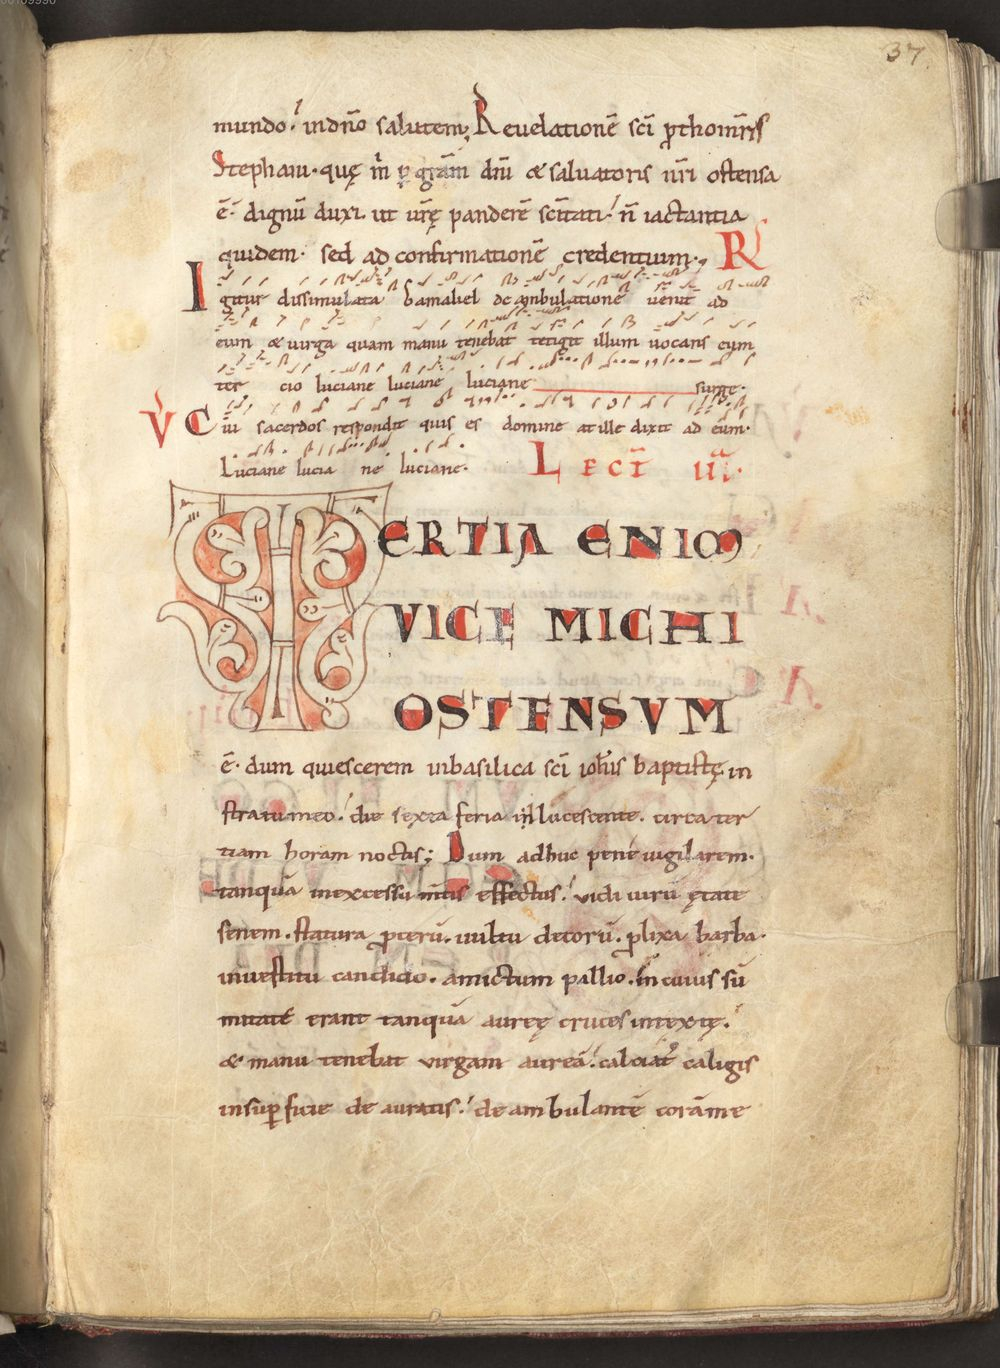 37
mundo. indño salutem; Reuelationē scī ꝓthomr̄is
Stephani. quę m̄ ꝑ grām dnī & saluatoris nr̄i ostensa
ē. dignū duxi. ut ur̄ę panderē scītati. ñ iactantia
quidem. sed ad confirmationē credentium. R
Igitur dissimulata Gamaliel deambulatione uenit ad
eum & uirga quam manu tenebat tetigit illum uocans eum
ter cio luciane luciane luciane surge.
V Cui sacerdos respondit quis es domine at ille dixit ad eum.
Luciane lucia ne luciane. LECT III.
TERTIA ENIM
VICE MICHI
OSTENSVM
ē. dum quiescerem inbasilica scī ioħis baptistę in
stratu meo. die sexta feria illucescente. circa ter
tiam horam noctis; Dum adhuc pene uigilarem.
tanquā inexcessu mtis effectus. vidi uirū ętate
senem. statura ꝓcerū. uultu decorū. ꝓlixa barba.
inuestitu candido. amictum pallio. In cuius sū
mitate erant tanquā aureę cruces intextę.
& manu tenebat virgam aureā. calciat' caligis
insuꝑficie de auratis. de ambulantē corāme